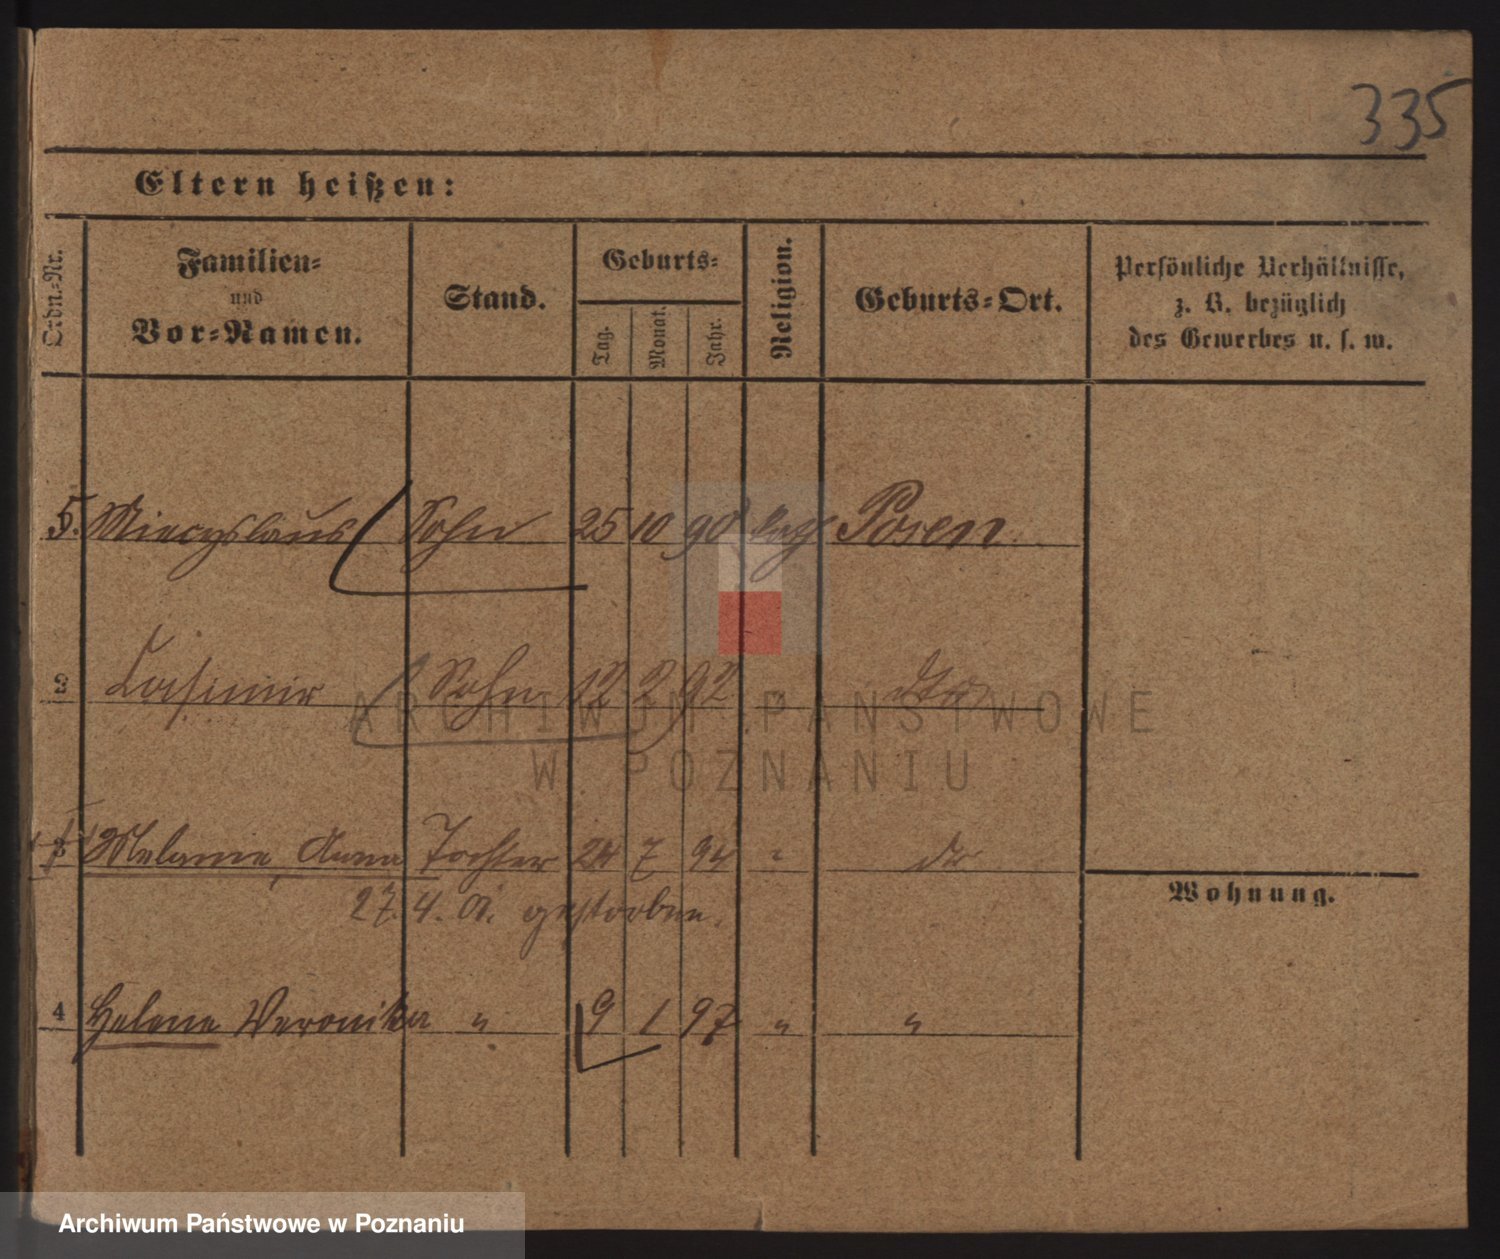 335
Eltern heißen:
Ordn.-Nr.
Familien-
und
Vor-Namen.
Stand.
Geburts-
Tag.
Monat.
Jahr.
Religion.
Geburts-Ort.
Persönliche Verhältnisse,
z. B. bezüglich
des Gewerbes u. s. w.
5. Miecyslaus Sohn 25 10 90 kath Posen
2 Casimir Sohn 12 2 92 " dto
3 Melanie, Anna Tochter 24 7 94 " do
27. 4. 01. gestorben.
Wohnung.
4 Helene Veronika " 9 1 97 " "
ARCHIWUM PAŃSTWOWE
W POZNANIU
Archiwum Państwowe w Poznaniu